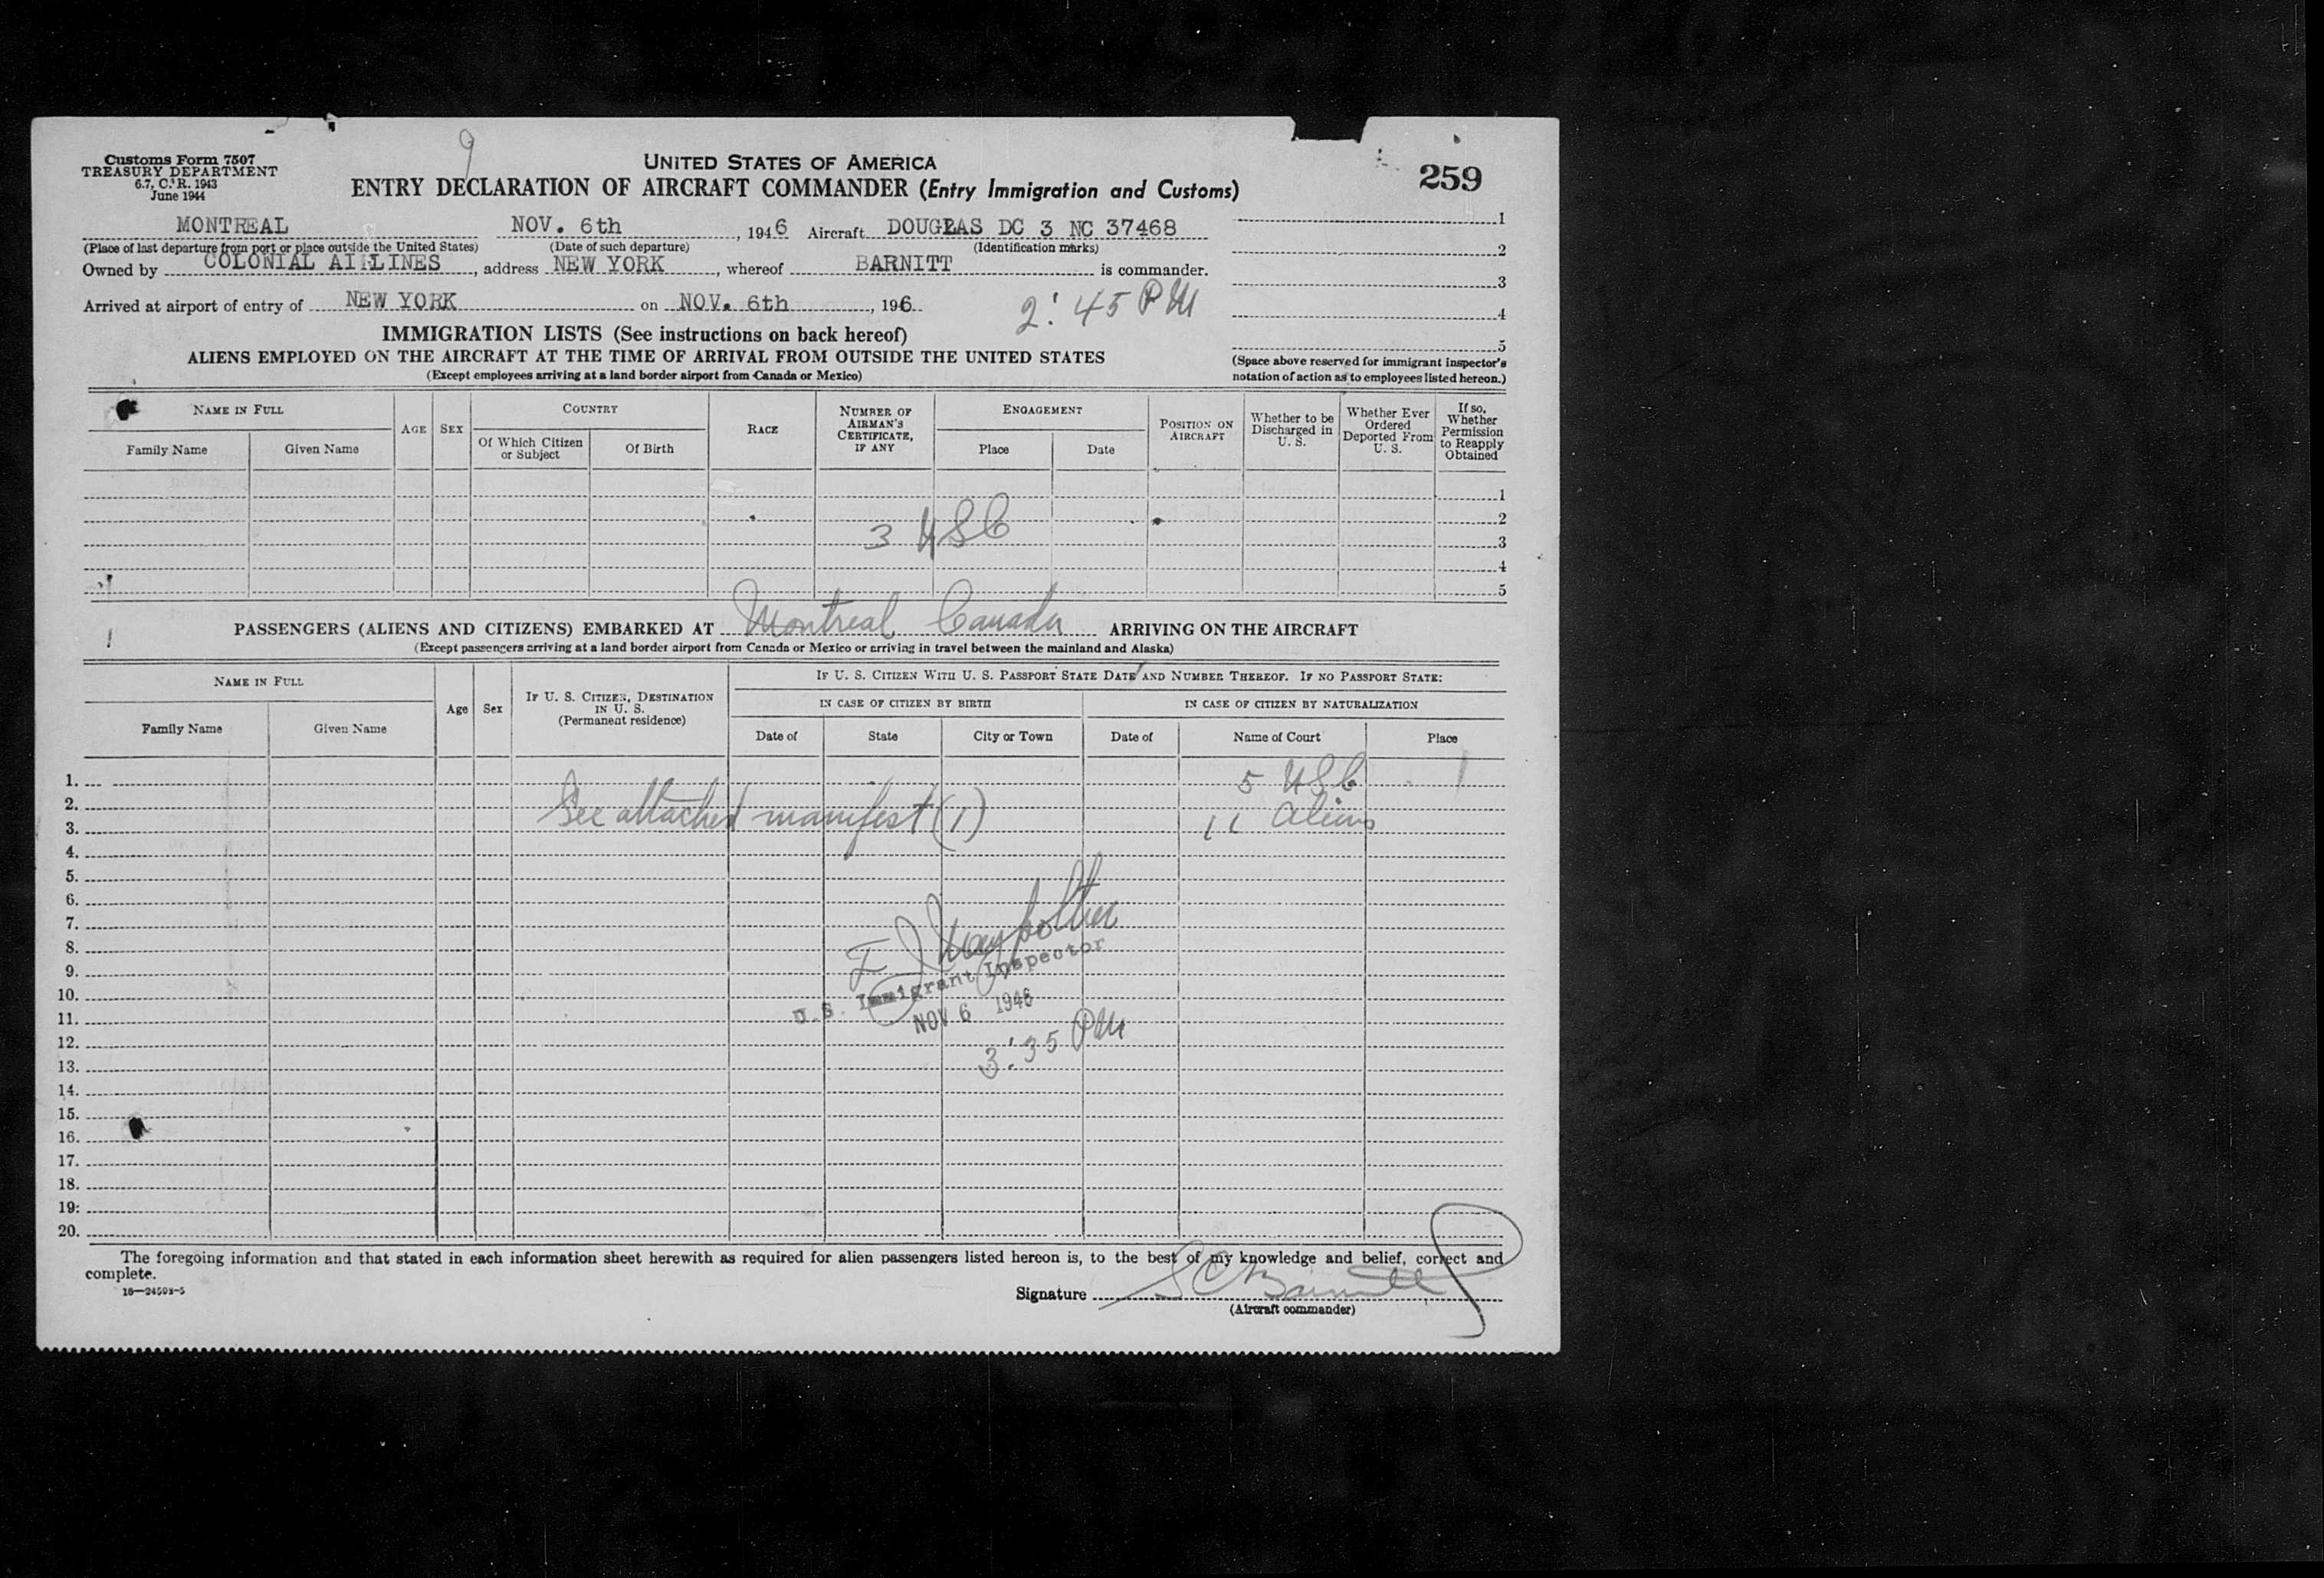 9
Customs Form 7507
TREASURY DEPARTMENT
6.7, C. R. 1943
June 1944
UNITED STATES OF AMERICA
ENTRY DECLARATION OF AIRCRAFT COMMANDER (Entry Immigration and Customs)
259
MONTREAL NOV. 6th, 1946 Aircraft DOUGLAS DC 3 NC 37468
(Place of last departure from port or place outside the United States) (Date of such departure) (Identification marks)
Owned by COLONIAL AIRLINES, address NEW YORK, whereof BARNITT is commander.
Arrived at airport of entry of NEW YORK on NOV. 6th, 196
2:45 PM
1
2
3
4
5
(Space above reserved for immigrant inspector's
notation of action as to employees listed hereon.)
IMMIGRATION LISTS (See instructions on back hereof)
ALIENS EMPLOYED ON THE AIRCRAFT AT THE TIME OF ARRIVAL FROM OUTSIDE THE UNITED STATES
(Except employees arriving at a land border airport from Canada or Mexico)
NAME IN FULL
Family Name Given Name
AGE SEX
COUNTRY
Of Which Citizen or Subject
Of Birth
RACE
NUMBER OF AIRMAN'S CERTIFICATE, IF ANY
ENGAGEMENT
Place Date
POSITION ON AIRCRAFT
Whether to be Discharged in U. S.
Whether Ever Ordered Deported From U. S.
If so, Whether Permission to Reapply Obtained
1
2
3 USC
3
4
5
PASSENGERS (ALIENS AND CITIZENS) EMBARKED AT Montreal Canada ARRIVING ON THE AIRCRAFT
(Except passengers arriving at a land border airport from Canada or Mexico or arriving in travel between the mainland and Alaska)
NAME IN FULL
Family Name Given Name
Age Sex
IF U. S. CITIZEN, DESTINATION IN U. S.
(Permanent residence)
IF U. S. CITIZEN WITH U. S. PASSPORT STATE DATE AND NUMBER THEREOF. IF NO PASSPORT STATE:
IN CASE OF CITIZEN BY BIRTH
IN CASE OF CITIZEN BY NATURALIZATION
Date of State City or Town Date of Name of Court Place
1. 5 USC
2.
See attached manifest (1) 11 aliens
3.
4.
5.
6.
7.
8.
9.
U.S. Immigrant Inspector
10.
11. NOV 6 1946
12.
3:35 PM
13.
14.
15.
16.
17.
18.
19.
20.
The foregoing information and that stated in each information sheet herewith as required for alien passengers listed hereon is, to the best of my knowledge and belief, correct and
complete.
16—24503-5
Signature S C Barnitt
(Aircraft commander)